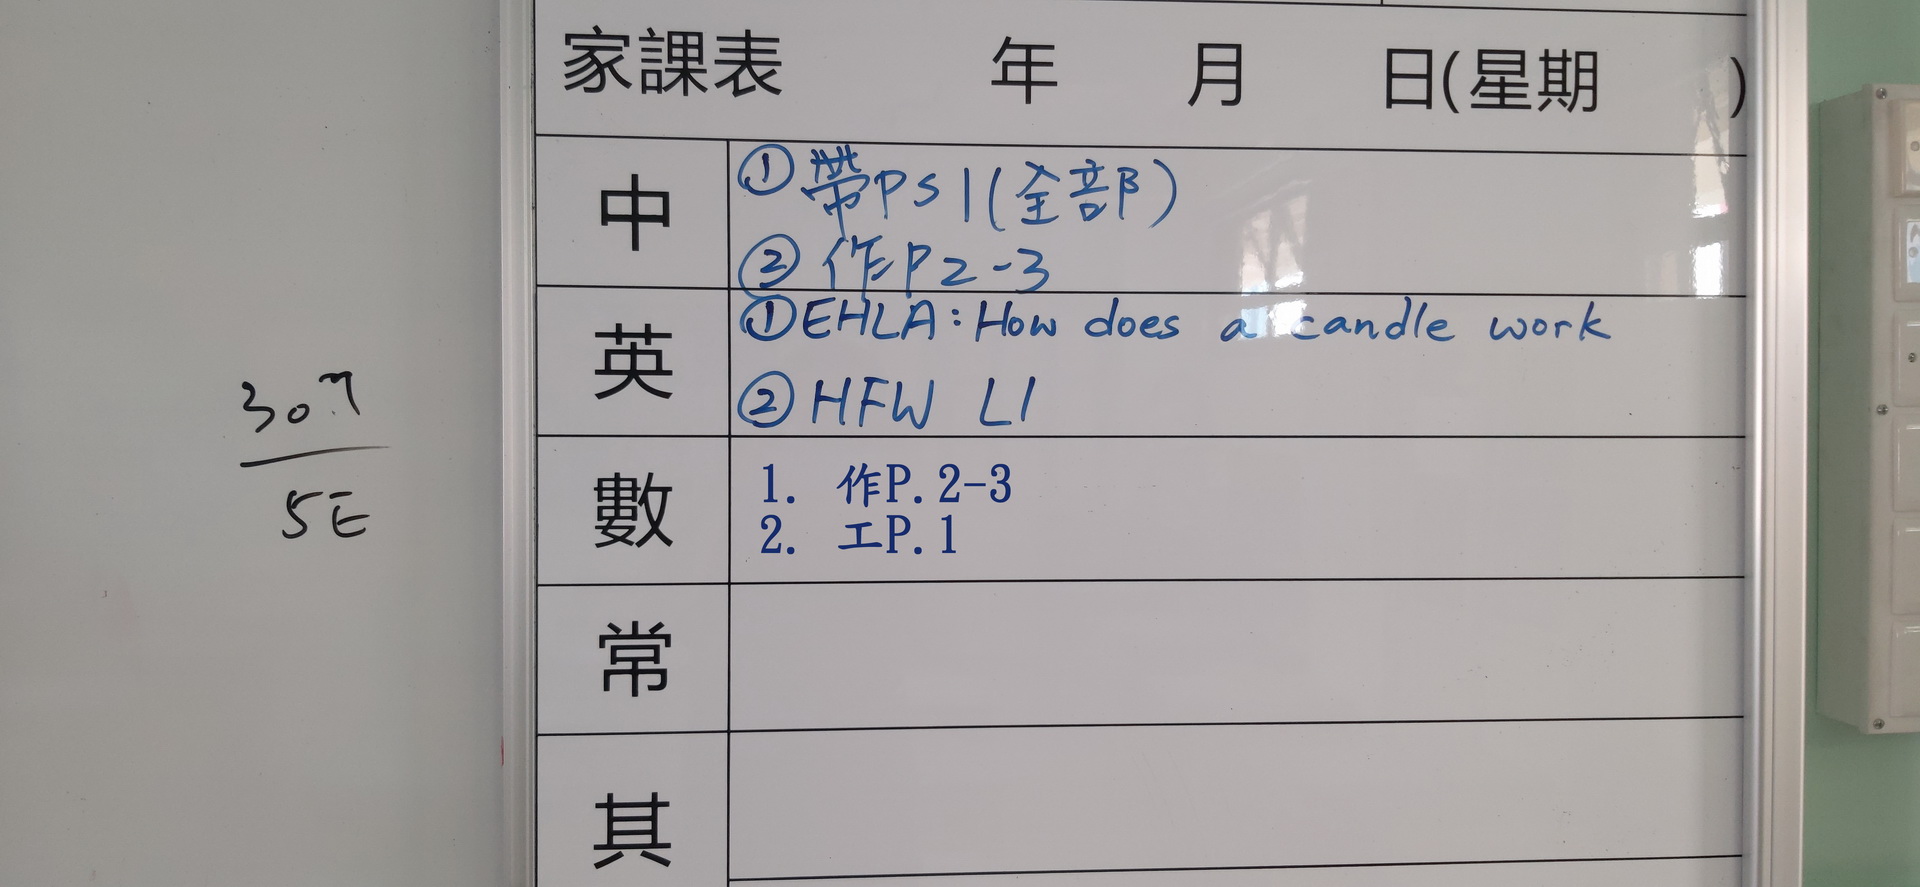 家課表 年 月 日(星期 )
中
①帶PS1(全部)
②作P2-3
英
①EHLA:How does a candle work
②HFW L1
數
1. 作P.2-3
2. 工P.1
常
其
5E